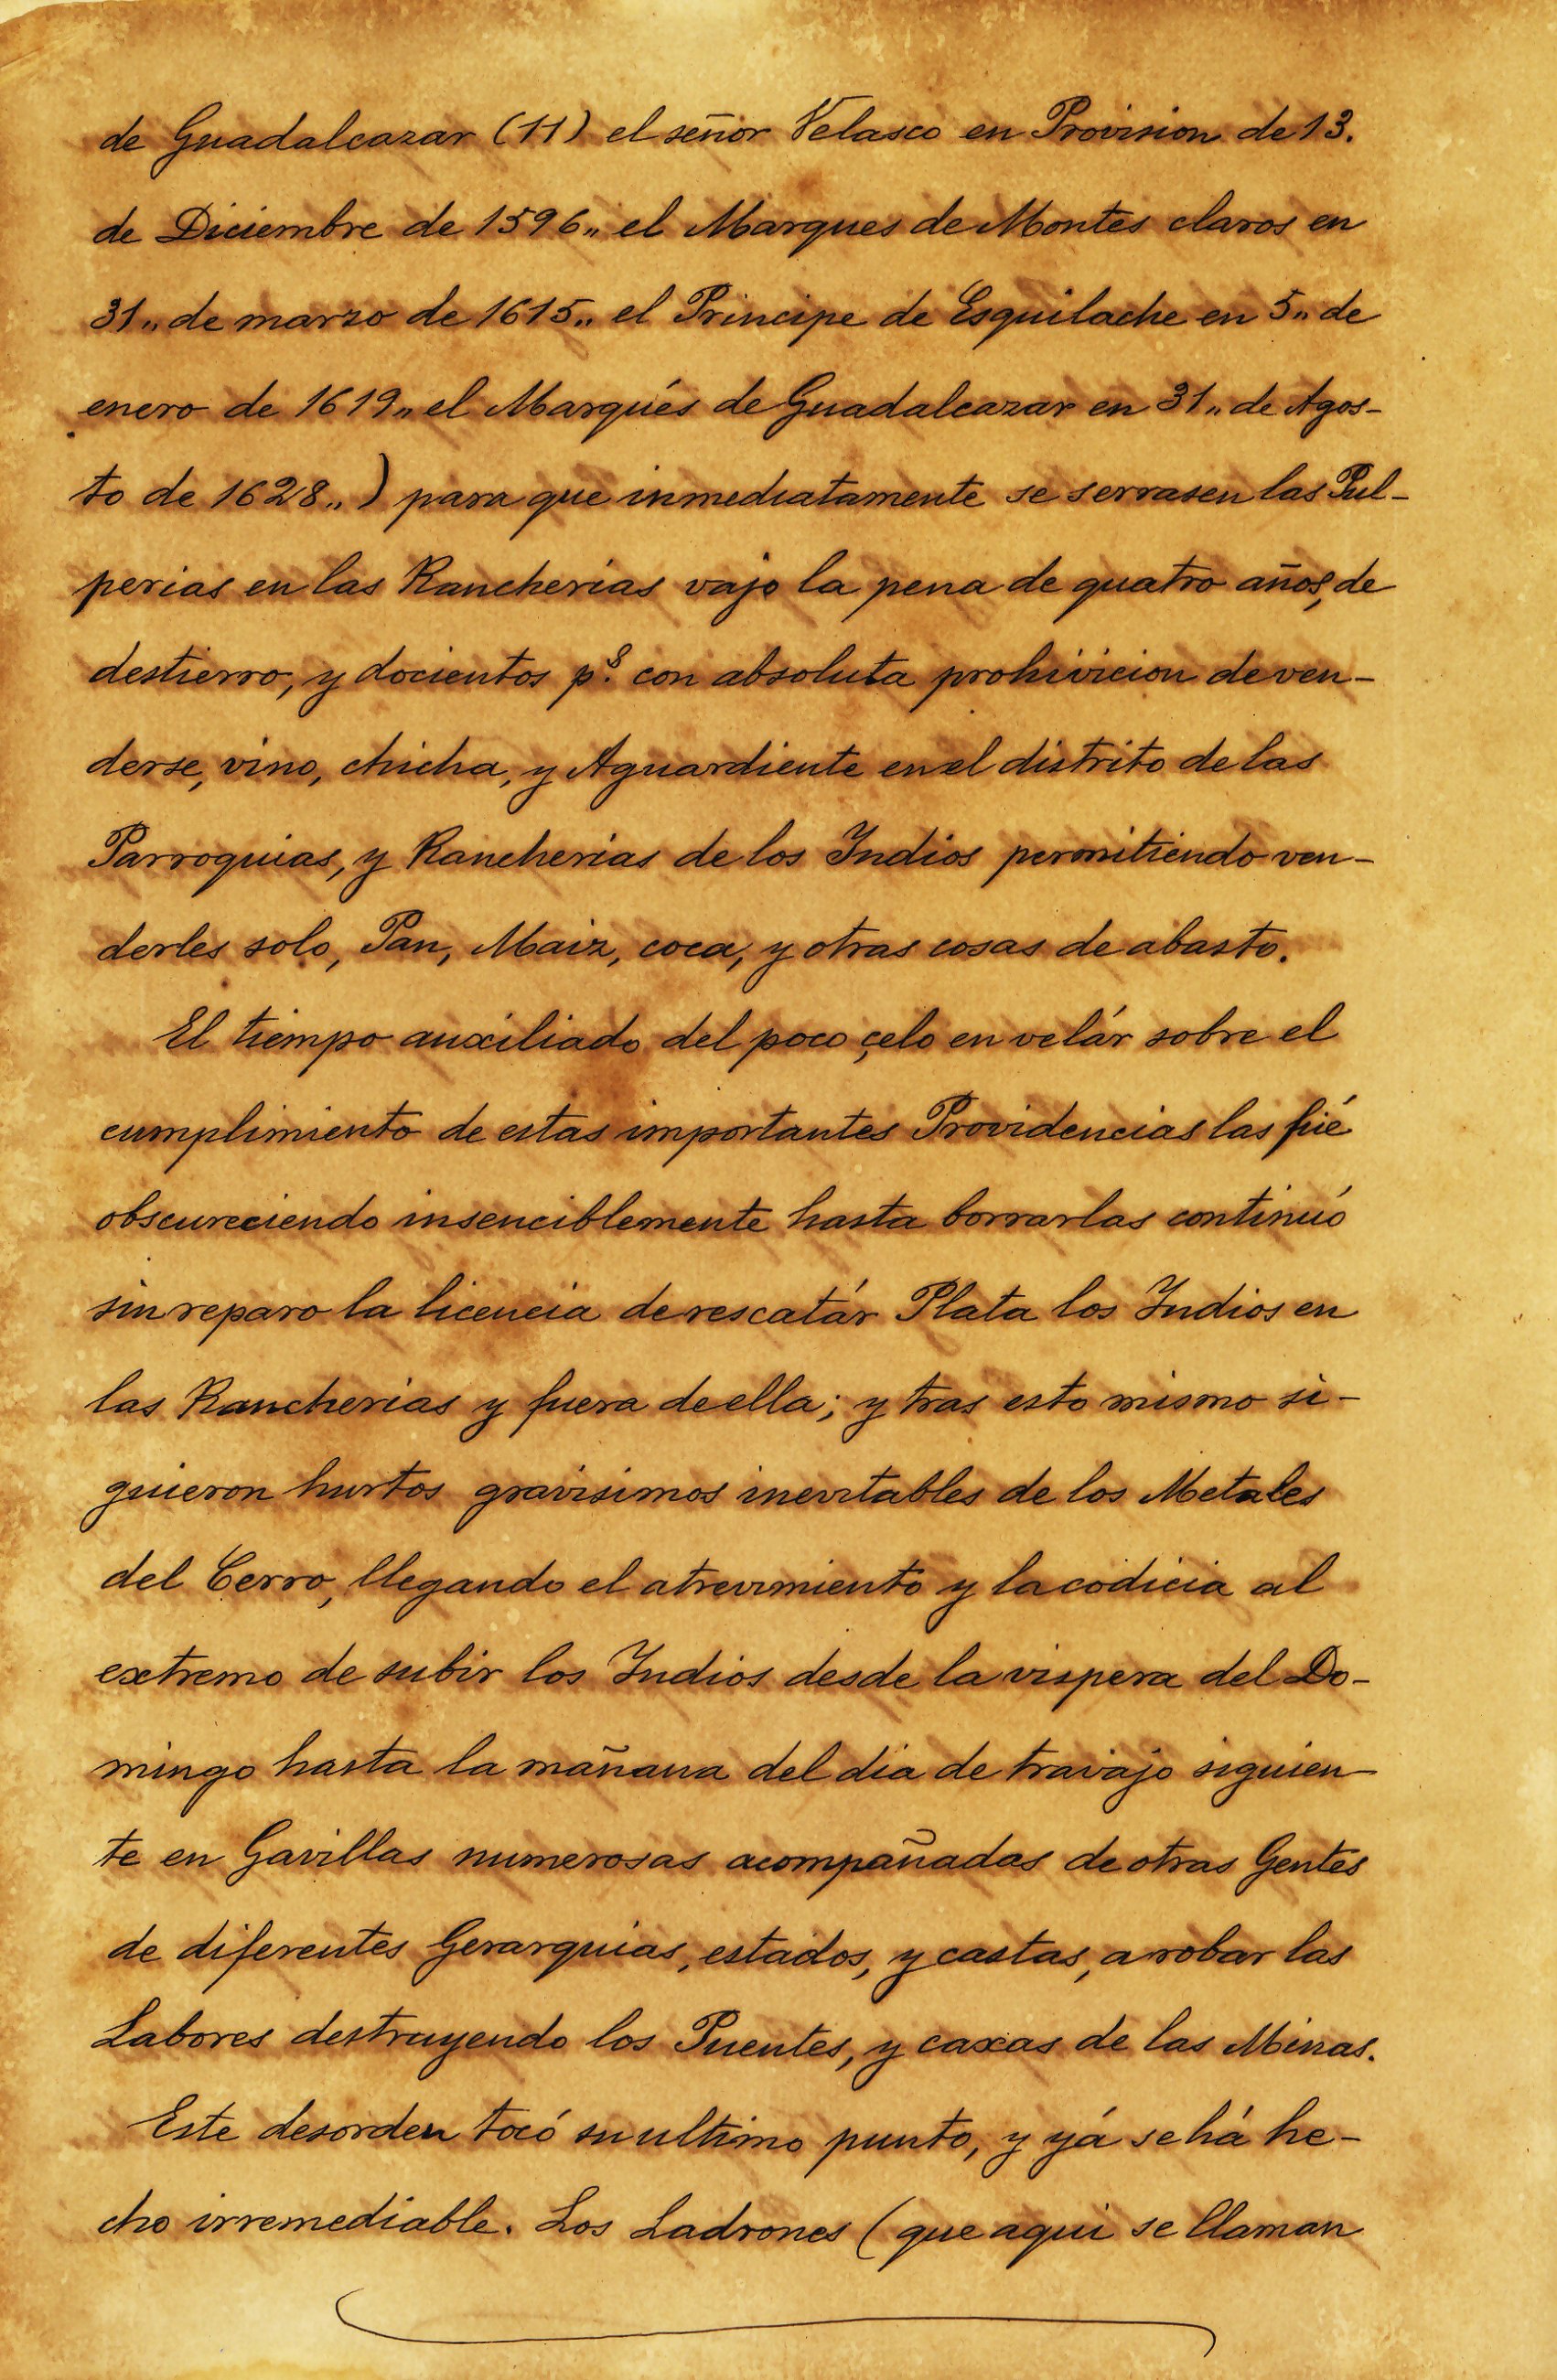 de Guadalcazar (11) el señor Velasco en Provision de 13.
de Diciembre de 1596,, el Marques de Montes claros en
31,, de marzo de 1615,, el Principe de Esquilache en 5,, de
enero de 1619,, el Marqués de Guadalcazar en 31,, de Agos-
to de 1628,,) para que inmediatamente se serrasen las Pul-
perias en las Rancherias vajo la pena de quatro años, de
destierro, y docientos p.s con absoluta prohivicion de ven-
derse, vino, chicha, y Aguardiente en el distrito de las
Parroquias, y Rancherias de los Indios permitiendo ven-
derles solo, Pan, Maiz, coca, y otras cosas de abasto.
El tiempo auxiliado del poco çelo en velár sobre el
cumplimiento de estas importantes Providencias las fué
obscureciendo insenciblemente hasta borrarlas continuó
sin reparo la licencia de rescatár Plata los Indios en
las Rancherias y fuera de ella; y tras esto mismo si-
guieron hurtos gravisimos inevitables de los Metales
del Cerro, llegando el atrevimiento y la codicia al
extremo de subir los Indios desde la vispera del Do-
mingo hasta la mañana del dia de travajo siguien-
te en Gavillas numerosas acompañadas de otras Gentes
de diferentes Gerarquias, estados, y castas, a robar las
Labores destruyendo los Puentes, y caxas de las Minas.
Este desorden tocó su ultimo punto, y yá se há he-
cho irremediable. Los Ladrones (que aqui se llaman